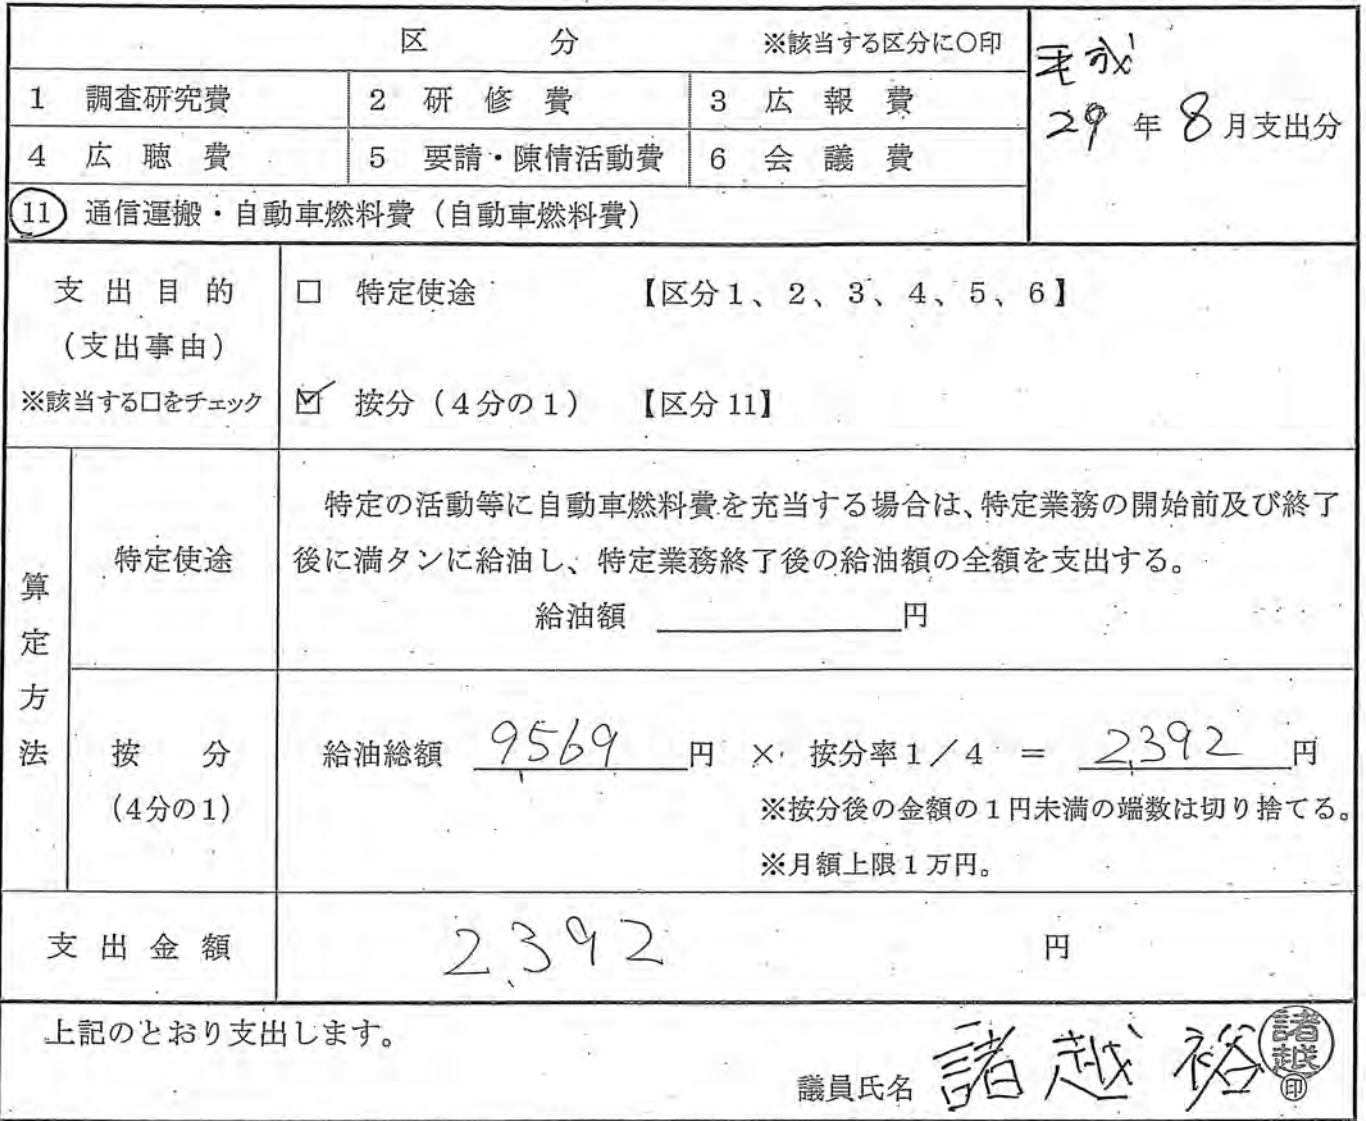 区 分 ※該当する区分に○印
平成
29 年 8 月支出分
1 調査研究費 2 研修費 3 広報費
4 広聴費 5 要請・陳情活動費 6 会議費
11 通信運搬・自動車燃料費(自動車燃料費)
支出目的
(支出事由)
※該当する口をチェック
□ 特定使途 【区分1、2、3、4、5、6】
☑ 按分(4分の1) 【区分11】
算定方法
特定使途
特定の活動等に自動車燃料費を充当する場合は、特定業務の開始前及び終了
後に満タンに給油し、特定業務終了後の給油額の全額を支出する。
給油額 円
按分
(4分の1)
給油総額 9,569 円 × 按分率1/4 = 2,392 円
※按分後の金額の1円未満の端数は切り捨てる。
※月額上限1万円。
支出金額 2,392 円
上記のとおり支出します。
議員氏名 諸越 裕
諸越
印